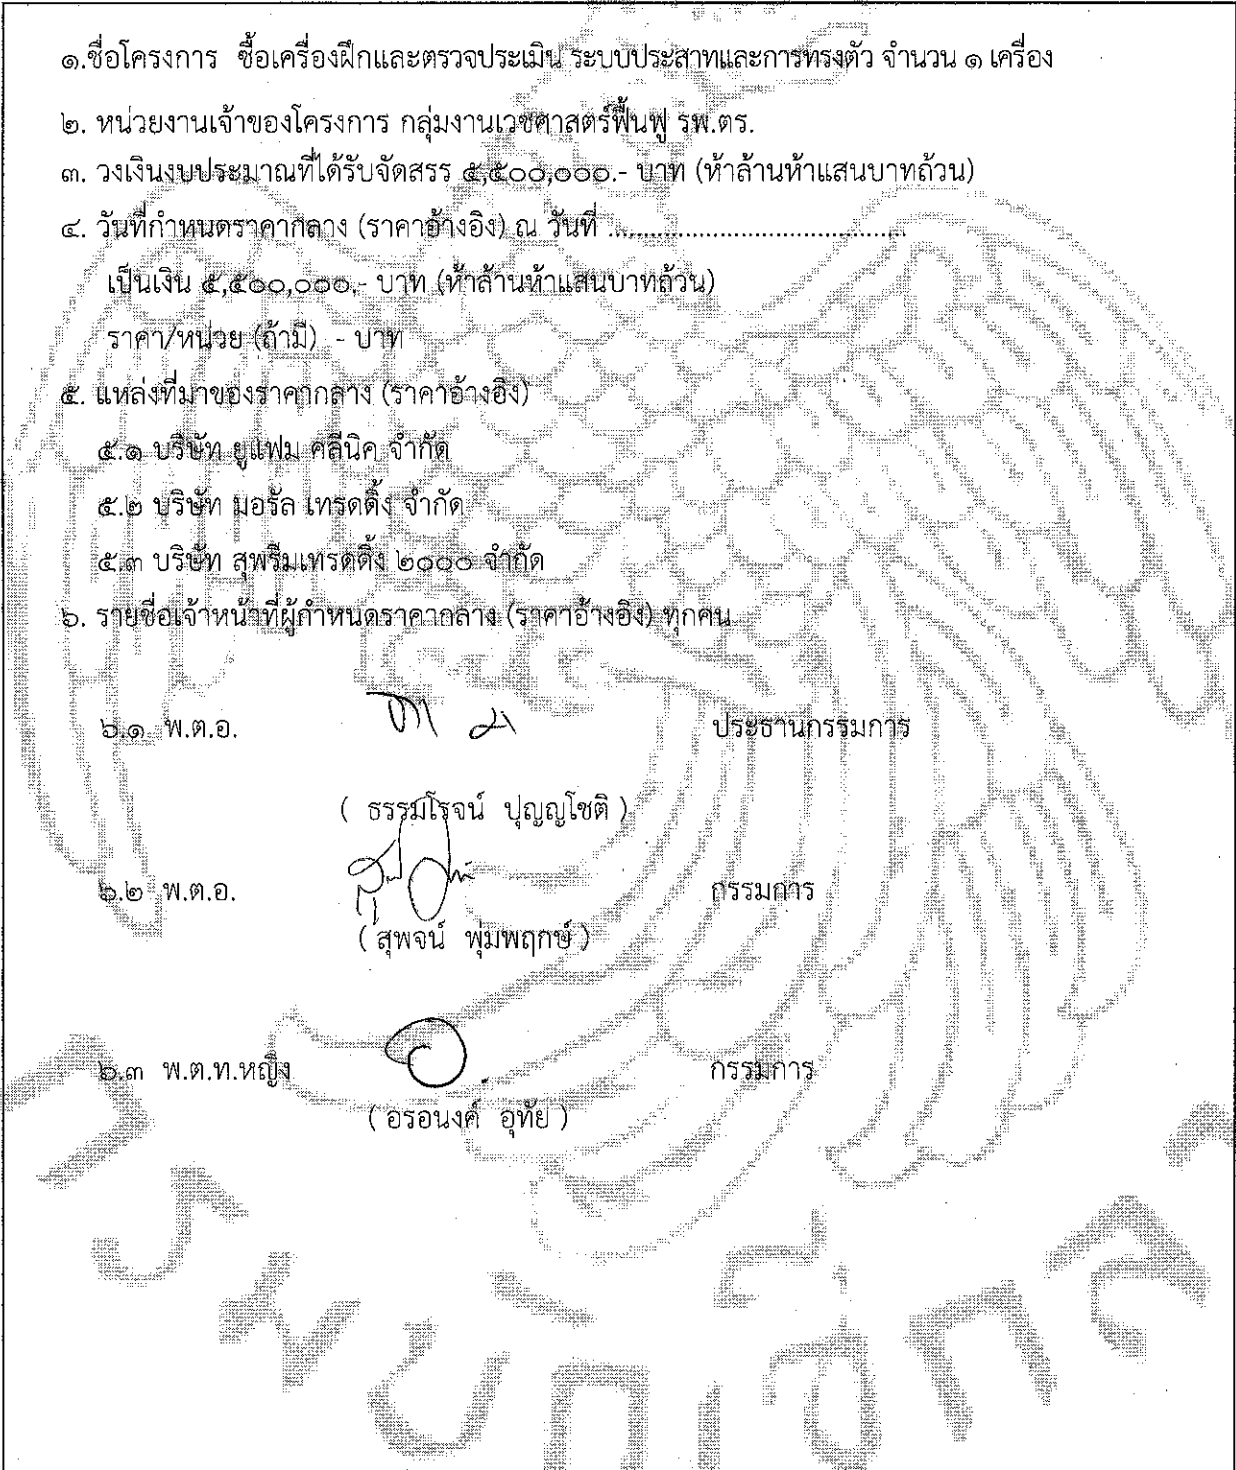 ๑.ชื่อโครงการ ซื้อเครื่องฝึกและตรวจประเมิน ระบบประสาทและการทรงตัว จำนวน ๑ เครื่อง
๒. หน่วยงานเจ้าของโครงการ กลุ่มงานเวชศาสตร์ฟื้นฟู รพ.ตร.
๓. วงเงินงบประมาณที่ได้รับจัดสรร ๕,๕๐๐,๐๐๐.- บาท (ห้าล้านห้าแสนบาทถ้วน)
๔. วันที่กำหนดราคากลาง (ราคาอ้างอิง) ณ วันที่ ...........................................
เป็นเงิน ๕,๕๐๐,๐๐๐.- บาท (ห้าล้านห้าแสนบาทถ้วน)
ราคา/หน่วย (ถ้ามี) - บาท
๕. แหล่งที่มาของราคากลาง (ราคาอ้างอิง)
๕.๑ บริษัท ยูแฟม คลีนิค จำกัด
๕.๒ บริษัท มอรัล เทรดดิ้ง จำกัด
๕.๓ บริษัท สุพรีมเทรดดิ้ง ๒๐๐๐ จำกัด
๖. รายชื่อเจ้าหน้าที่ผู้กำหนดราคากลาง (ราคาอ้างอิง) ทุกคน
๖.๑ พ.ต.อ. ประธานกรรมการ
( ธรรมโรจน์ ปุญญโชติ )
๖.๒ พ.ต.อ. กรรมการ
( สุพจน์ พุ่มพฤกษ์ )
๖.๓ พ.ต.ท.หญิง กรรมการ
( อรอนงค์ อุทัย )